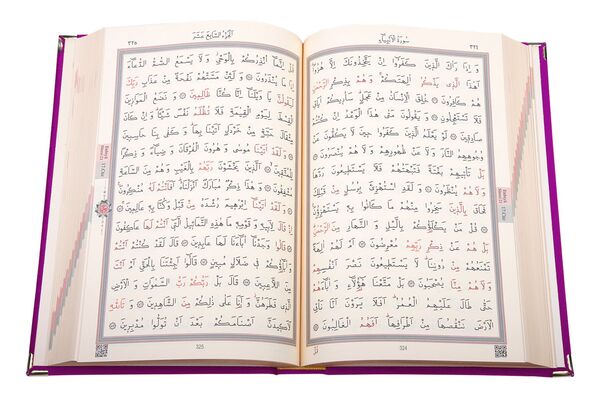 سُورَةُ الْأَنْبِيَاءِ
٣٢٤
وَإِذَا رَآكَ الَّذِينَ كَفَرُوا إِنْ يَتَّخِذُونَكَ إِلَّا هُزُوًا
أَهَذَا الَّذِي يَذْكُرُ آلِهَتَكُمْ وَهُمْ بِذِكْرِ الرَّحْمَنِ
هُمْ كَافِرُونَ خُلِقَ الْإِنْسَانُ مِنْ عَجَلٍ سَأُرِيكُمْ آيَاتِي
فَلَا تَسْتَعْجِلُونِ وَيَقُولُونَ مَتَى هَذَا الْوَعْدُ إِنْ كُنْتُمْ
صَادِقِينَ لَوْ يَعْلَمُ الَّذِينَ كَفَرُوا حِينَ لَا يَكُفُّونَ
عَنْ وُجُوهِهِمُ النَّارَ وَلَا عَنْ ظُهُورِهِمْ وَلَا هُمْ يُنْصَرُونَ
بَلْ تَأْتِيهِمْ بَغْتَةً فَتَبْهَتُهُمْ فَلَا يَسْتَطِيعُونَ رَدَّهَا
وَلَا هُمْ يُنْظَرُونَ وَلَقَدِ اسْتُهْزِئَ بِرُسُلٍ مِنْ قَبْلِكَ
فَحَاقَ بِالَّذِينَ سَخِرُوا مِنْهُمْ مَا كَانُوا بِهِ يَسْتَهْزِؤُنَ
قُلْ مَنْ يَكْلَؤُكُمْ بِالَّيْلِ وَالنَّهَارِ مِنَ الرَّحْمَنِ
بَلْ هُمْ عَنْ ذِكْرِ رَبِّهِمْ مُعْرِضُونَ أَمْ لَهُمْ آلِهَةٌ
تَمْنَعُهُمْ مِنْ دُونِنَا لَا يَسْتَطِيعُونَ نَصْرَ أَنْفُسِهِمْ
وَلَا هُمْ مِنَّا يُصْحَبُونَ بَلْ مَتَّعْنَا هَؤُلَاءِ وَآبَاءَهُمْ
حَتَّى طَالَ عَلَيْهِمُ الْعُمُرُ أَفَلَا يَرَوْنَ أَنَّا نَأْتِي
الْأَرْضَ نَنْقُصُهَا مِنْ أَطْرَافِهَا أَفَهُمُ الْغَالِبُونَ
قُلْ
324
الْجُزْءُ السَّابِعَ عَشَرَ
٣٢٥
قُلْ إِنَّمَا أُنْذِرُكُمْ بِالْوَحْيِ وَلَا يَسْمَعُ الصُّمُّ الدُّعَاءَ
إِذَا مَا يُنْذَرُونَ وَلَئِنْ مَسَّتْهُمْ نَفْحَةٌ مِنْ عَذَابِ رَبِّكَ
لَيَقُولُنَّ يَا وَيْلَنَا إِنَّا كُنَّا ظَالِمِينَ وَنَضَعُ الْمَوَازِينَ
الْقِسْطَ لِيَوْمِ الْقِيَمَةِ فَلَا تُظْلَمُ نَفْسٌ شَيْئًا وَإِنْ كَانَ
مِثْقَالَ حَبَّةٍ مِنْ خَرْدَلٍ أَتَيْنَا بِهَا وَكَفَى بِنَا حَاسِبِينَ
وَلَقَدْ آتَيْنَا مُوسَى وَهَرُونَ الْفُرْقَانَ وَضِيَاءً وَذِكْرًا
لِلْمُتَّقِينَ الَّذِينَ يَخْشَوْنَ رَبَّهُمْ بِالْغَيْبِ وَهُمْ مِنَ السَّاعَةِ
مُشْفِقُونَ وَهَذَا ذِكْرٌ مُبَارَكٌ أَنْزَلْنَاهُ أَفَأَنْتُمْ لَهُ مُنْكِرُونَ
وَلَقَدْ آتَيْنَا إِبْرَهِيمَ رُشْدَهُ مِنْ قَبْلُ وَكُنَّا بِهِ عَالِمِينَ
إِذْ قَالَ لِأَبِيهِ وَقَوْمِهِ مَا هَذِهِ التَّمَاثِيلُ الَّتِي أَنْتُمْ لَهَا عَاكِفُونَ
قَالُوا وَجَدْنَا آبَاءَنَا لَهَا عَابِدِينَ قَالَ لَقَدْ كُنْتُمْ أَنْتُمْ
وَآبَاؤُكُمْ فِي ضَلَالٍ مُبِينٍ قَالُوا أَجِئْتَنَا بِالْحَقِّ أَمْ أَنْتَ
مِنَ اللَّاعِبِينَ قَالَ بَلْ رَبُّكُمْ رَبُّ السَّمَوَاتِ وَالْأَرْضِ
الَّذِي فَطَرَهُنَّ وَأَنَا عَلَى ذَلِكُمْ مِنَ الشَّاهِدِينَ وَتَاللَّهِ
لَأَكِيدَنَّ أَصْنَامَكُمْ بَعْدَ أَنْ تُوَلُّوا مُدْبِرِينَ
325